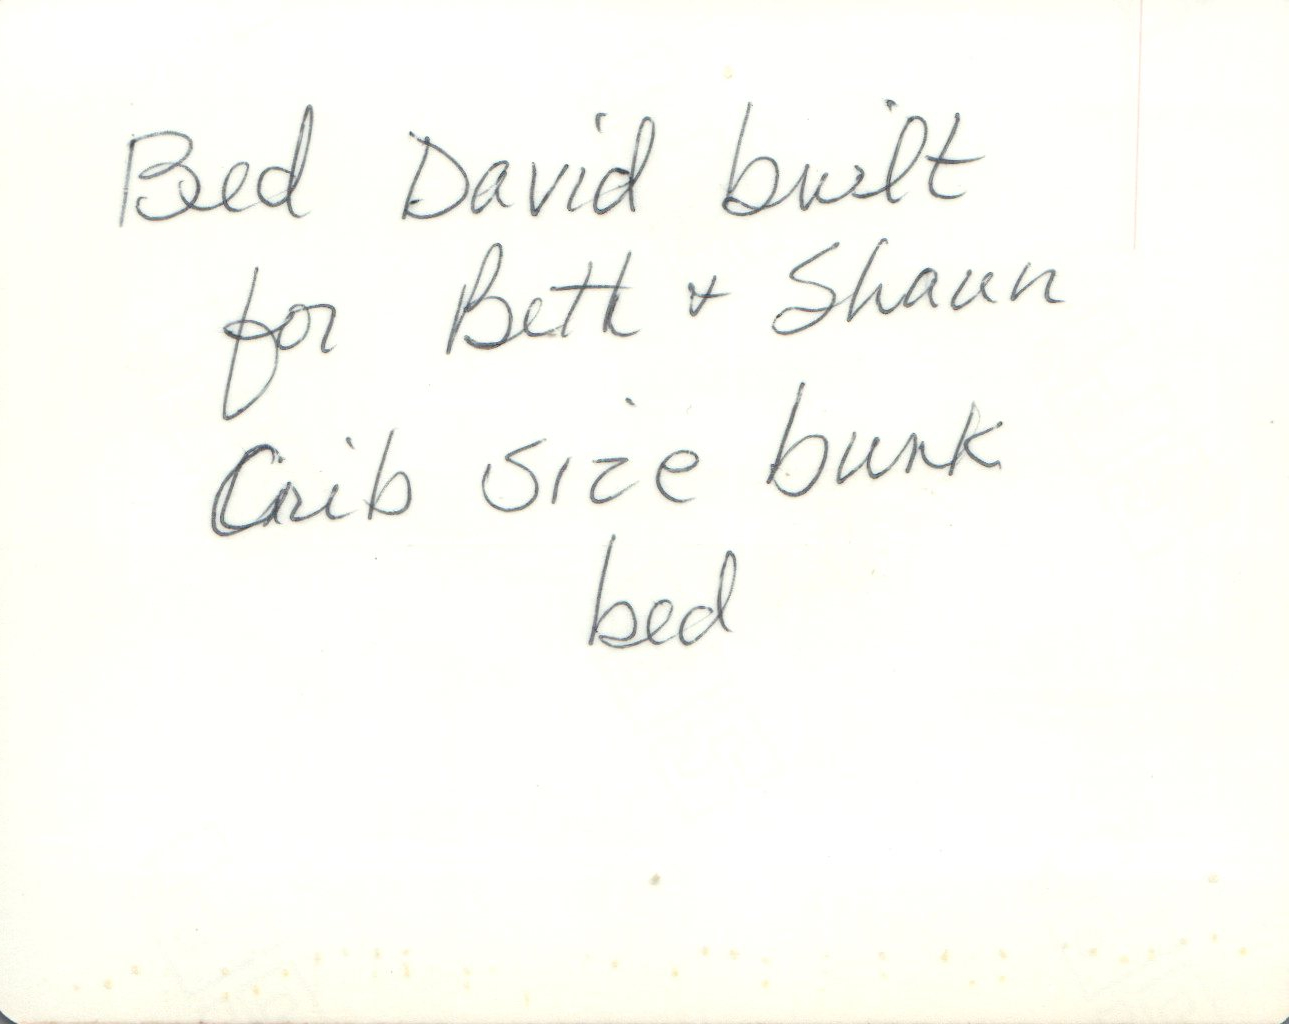 Bed David built
for Beth + Shaun
Crib size bunk
bed